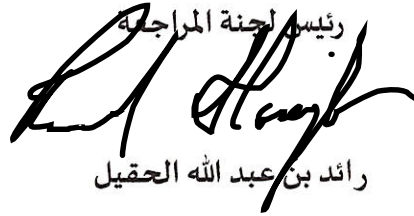 رئيس لجنة المراجعة
رائد بن عبد الله الحقيل